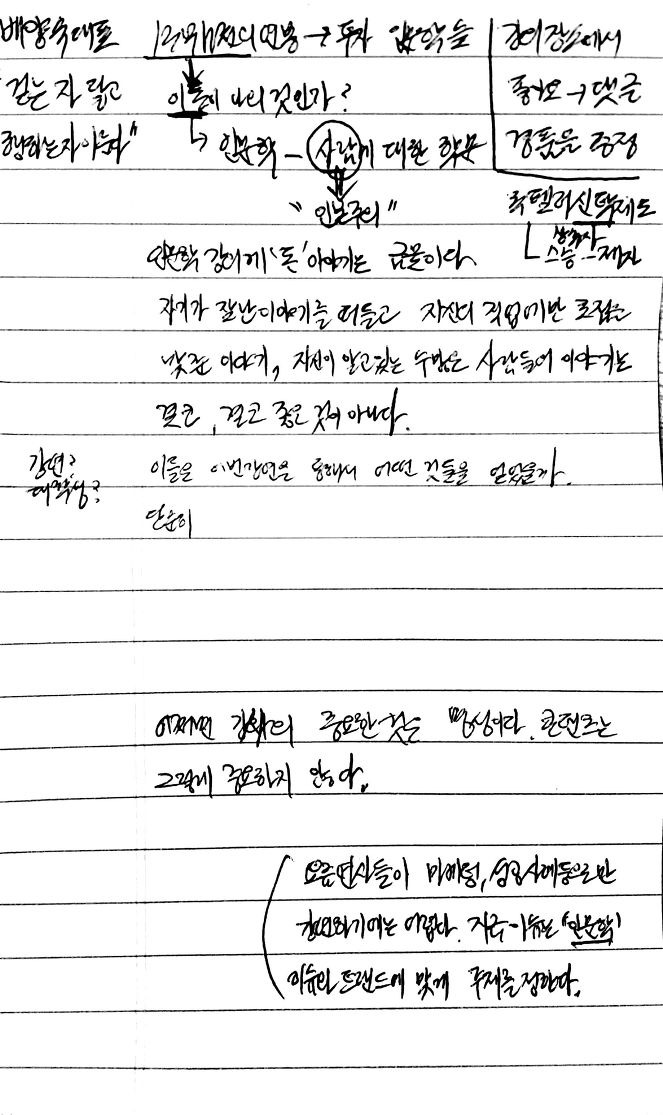 배양숙대표
걷는 자 닮고
행하는자 이룬다"
1억배전의 연봉 → 투자 인문학들
이름이 나의 것인가?
↳ 인문학 - 사람에 대한 학문
"인본주의"
강의장소에서
좋아요 → 댓글
경품을 증정
록펠러신탁제도
스승 - 제자
인문학 강의에 '돈' 이야기는 금물이다.
자기가 잘난이야기를 떠들고 자신의 직업에만 초점을
맞춘 이야기, 자신이 알고있는 수많은 사람들의 이야기는
결코, 결코 좋은 것이 아니다.
강연?
이들은 이번강연을 통해서 어떤 것들을 얻었을까.
단순히
어쩌면 강의의 중요한 것은 명성이다. 콘텐츠는
그렇게 중요하지 않다.
요즘연사들이 마케팅, 성공사례등으로만
강연하기에는 어렵다. 지금 이슈는 "인문학"
이슈와 트랜드에 맞게 주제를 정한다.